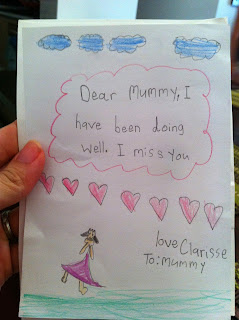 Dear Mummy, I
have been doing
well. I miss you
love Clarisse
To: mummy